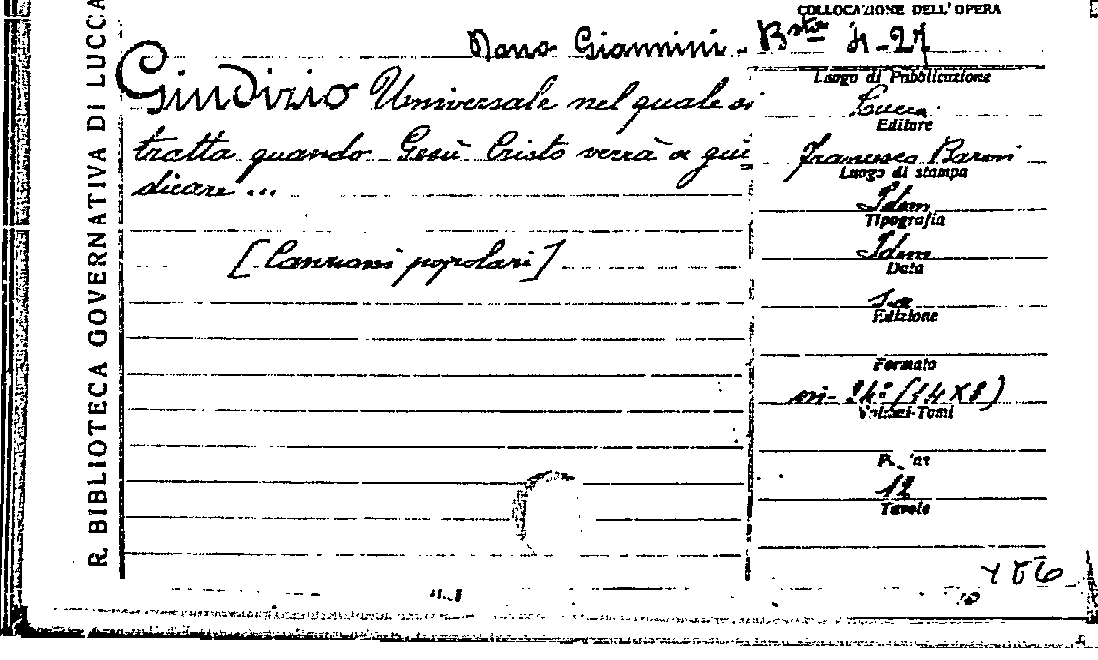 R. BIBLIOTECA GOVERNATIVA DI LUCCA
COLLOCAZIONE DELL'OPERA
Dono Giannini - Bsta 4-27
Giudizio Universale nel quale si
tratta quando Gesù Cristo verrà a giu
dicare ...
[Canzoni popolari]
Luogo di Pubblicazione
Lucca
Editore
Francesco Baroni
Luogo di stampa
Idem
Tipografia
Idem
Data
s.a
Edizione
Formato
in-24° (14x8)
Volumi-Tomi
12
Tavole